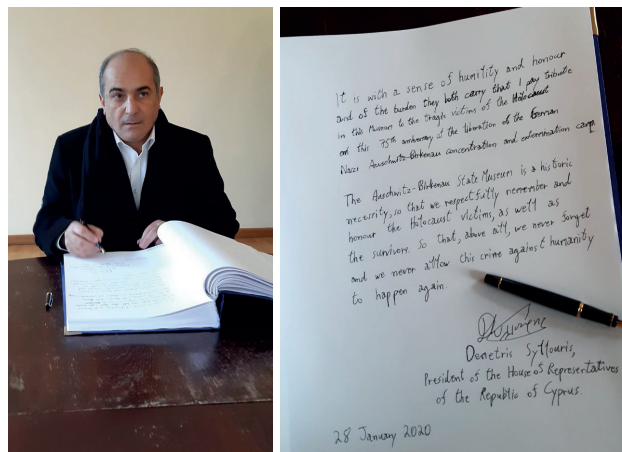 It is with a sense of humility and honour
and of the burden they both carry that I pay tribute
in this Museum to the tragic victims of the Holocaust
on this 75th anniversary of the liberation of the German
Nazi Auschwitz-Birkenau concentration and extermination camp
The Auschwitz-Birkenau State Museum is a historic
necessity, so that we respectfully remember and
honour the Holocaust victims, as well as
the survivors. So that, above all, we never forget
and we never allow this crime against humanity
to happen again.
Demetris Syllouris,
President of the House of Representatives
of the Republic of Cyprus.
28 January 2020